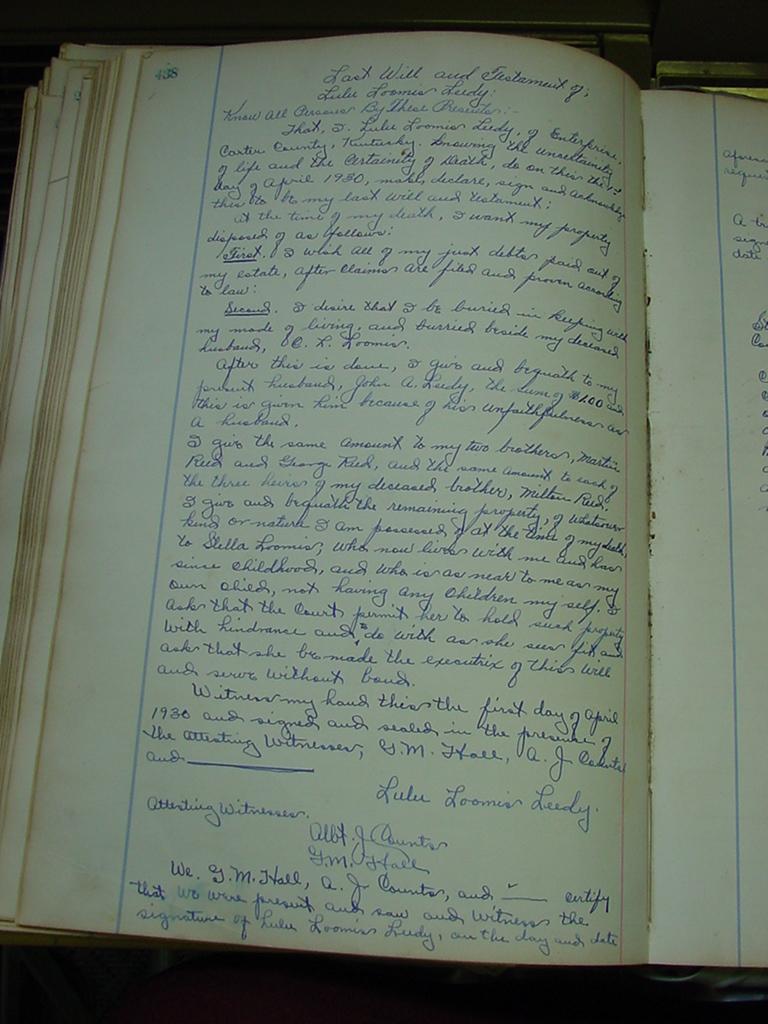 438
Last Will and Testament of;
Lulu Loomis Leedy:
Know All Persons By These Presents:-
That, I. Lulu Loomis Leedy, of Enterprise,
Carter County, Kentucky. Knowing the uncertainity
of life and the Certainity of Death, do on this the 1st
day of April 1930, make, declare, sign and acknowledge
this to be my last will and testament:
at the time of my death, I want my property
disposed of as follows:
First. I wish all of my just debts paid out of
my estate, after claims are filed and proven according
to law:
Second. I desire that I be buried in keeping with
my mode of living, and burried beside my deceased
husband, C. L. Loomis.
After this is done, I give and bequath to my
present husband, John A. Leedy, the sum of $1.00 and
this is given him because of his unfaithfulness as
a husband.
I give the same amount to my two brothers, Martin
Reed and George Reed, and the same amount to each of
the three heirs of my deceased brother, Milton Reed.
I give and bequath the remaining property, of whatsoever
kind or nature I am possessed of at the time of my death,
to Stella Loomis, who now lives with me and has
since childhood, and who is as near to me as my
own child, not having any children my self. I
ask that the Court permit her to hold such property
with hindrance and to do with as she sees fit and
ask that she be made the executrix of this will
and serve without bond.
Witness my hand this the first day of April
1930 and signed and sealed in the presence of
the attesting witnesses, G.M. Hall, A. J Counts
and
Lulu Loomis Leedy.
Attesting Witnesses.
Albt. J. Counts
G.M. Hall
We. G.M. Hall, A. J Counts, and certify
that we were present and saw and witness the
signature of Lulu Loomis Leedy, on the day and date